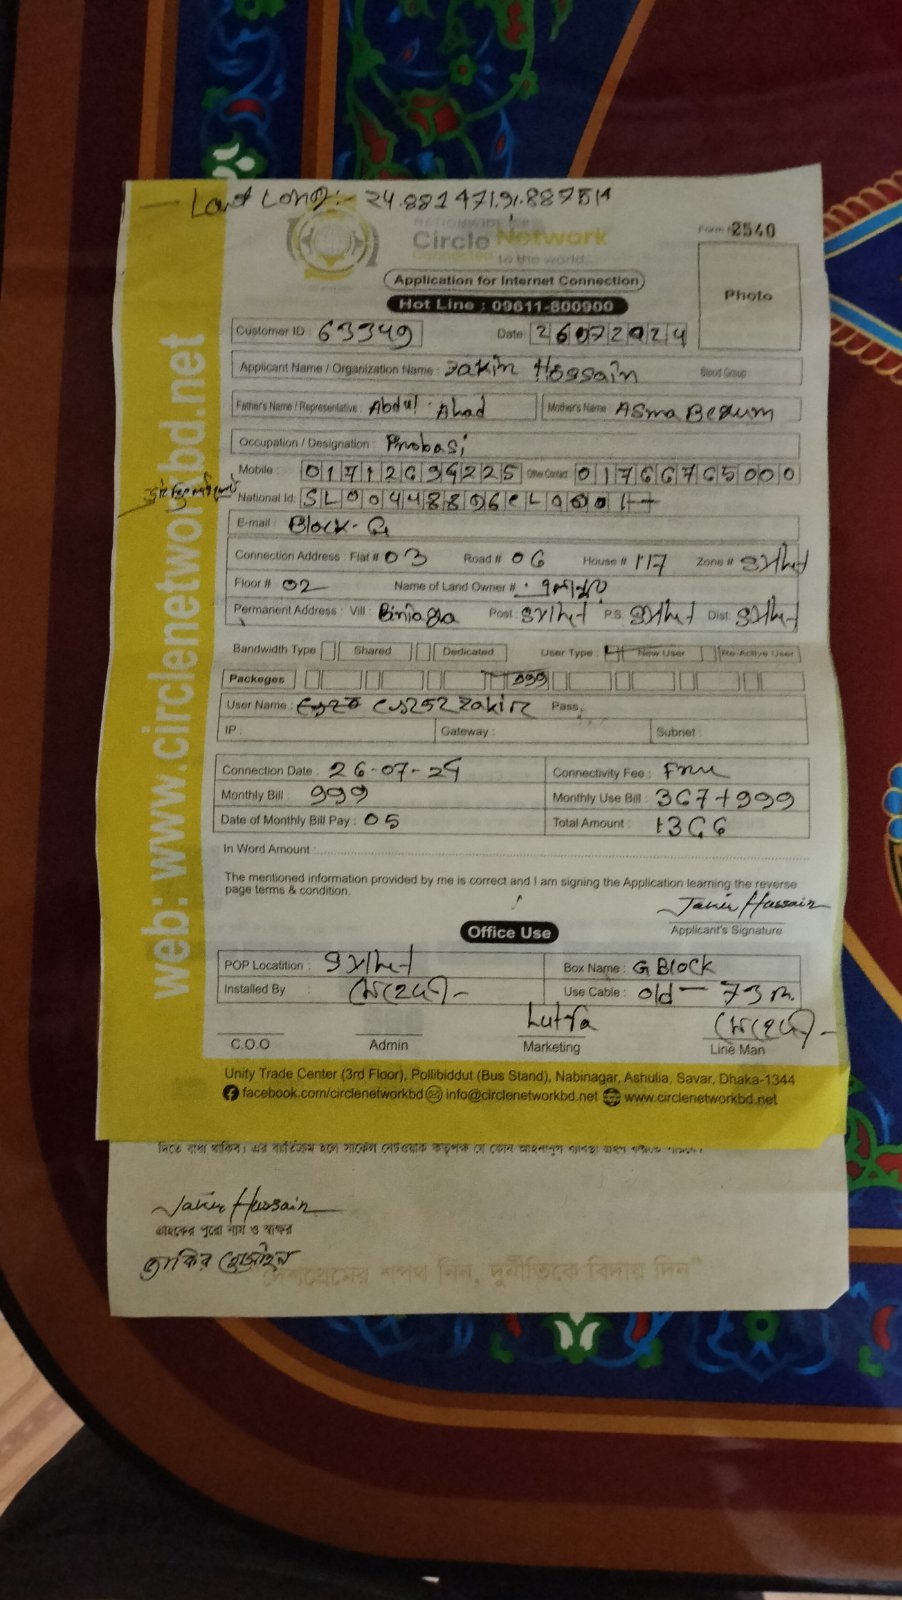 Lat Long:- 24.881471,91.887514
NATIONWIDE ISP
Circle Network
Connected to the world...
Form # 2540
Application for Internet Connection
Hot Line : 09611-800900
Photo
Customer ID : 63349 Date: 26072024
Applicant Name / Organization Name : Zakir Hossain Blood Group
Father's Name / Representative : Abdul Ahad Mother's Name ASma Begum
Occupation / Designation : Probasi
Mobile : 01712694225 Other Contact 01766765000
National Id:
E-mail : Block-G
Connection Address : Flat # 03 Road # 06 House # 117 Zone # Sylhet
Floor # 02 Name of Land Owner #
Permanent Address : Vill : Post: Sylhet P.S Sylhet Dist: Sylhet
Bandwidth Type Shared Dedicated User Type : New User Re-Active User
Packeges 999
User Name : Pass:
IP : Gateway : Subnet :
Connection Date : 26-07-24 Connectivity Fee : Free
Monthly Bill : 999 Monthly Use Bill : 367+999
Date of Monthly Bill Pay : 05 Total Amount : 1366
In Word Amount :
The mentioned information provided by me is correct and I am signing the Application learning the reverse
page terms & condition.
Jakir Hussain
Applicant's Signature
Office Use
POP Locatition : Sylhet Box Name : G Block
Installed By : মেহেদী Use Cable : old - 73 m.
Lutfa মেহেদী
C.O.O Admin Marketing Line Man
Unity Trade Center (3rd Floor), Pollibiddut (Bus Stand), Nabinagar, Ashulia, Savar, Dhaka-1344
facebook.com/circlenetworkbd info@circlenetworkbd.net www.circlenetworkbd.net
web: www.circlenetworkbd.net
Jakir Hussain
গ্রাহকের পুরো নাম ও স্বাক্ষর
জাকির হোসাইন
"দেশপ্রেমের শপথ নিন, দুর্নীতিকে বিদায় দিন"